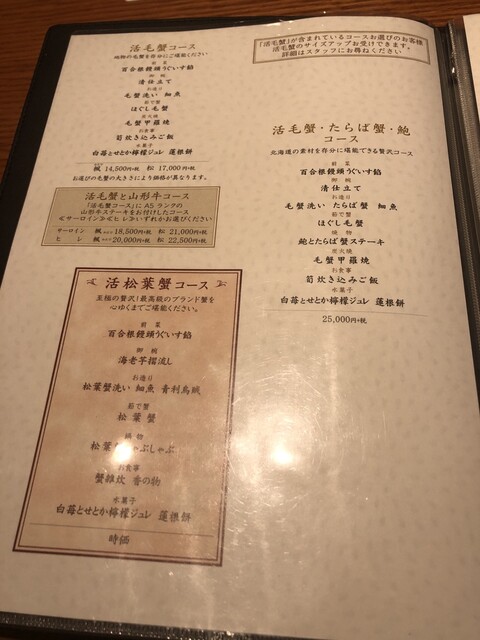 活毛蟹コース
前菜
百合根饅頭うぐいす餡
御椀
清仕立て
お造り
毛蟹洗い 細魚
茹で蟹
ほぐし毛蟹
炭火焼
毛蟹甲羅焼
お食事
筍炊き込みご飯
水菓子
白苺とせとか檸檬ジュレ 蓮根餅
楓 14,500円+税 松 17,000円+税
お選びの毛蟹の大きさにより価格が異なります。
活毛蟹と山形牛コース
「活毛蟹コース」にA5ランクの
山形牛ステーキをお付けしたコース
≪サーロイン≫≪ヒレ≫いずれかお選びください
サーロイン 楓 18,500円+税 松 21,000円+税
ヒレ 楓 20,000円+税 松 22,500円+税
活松葉蟹コース
至極の贅沢!最高級のブランド蟹を
心ゆくまでご堪能ください。
前菜
百合根饅頭うぐいす餡
御椀
海老芋摺流し
お造り
松葉蟹洗い 細魚 青利烏賊
茹で蟹
松葉蟹
鍋物
松葉 ぶしゃぶ
お食事
蟹雑炊 香の物
水菓子
白苺とせとか檸檬ジュレ 蓮根餅
時価
「活毛蟹」が含まれているコースお選びのお客様
活毛蟹のサイズアップお受けできます。
詳細はスタッフにお尋ねください
活毛蟹・たらば蟹・鮑
コース
北海道の素材を存分に堪能できる贅沢コース
前菜
百合根饅頭うぐいす餡
御椀
清仕立て
お造り
毛蟹洗い たらば蟹 細魚
茹で蟹
ほぐし毛蟹
焼物
鮑とたらば蟹ステーキ
炭火焼
毛蟹甲羅焼
お食事
筍炊き込みご飯
水菓子
白苺とせとか檸檬ジュレ 蓮根餅
25,000円+税